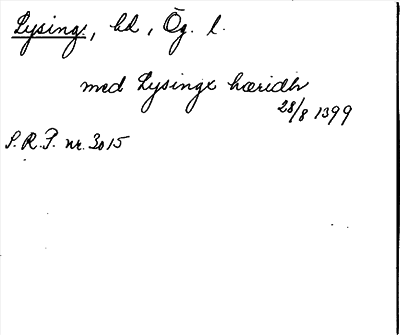 Lysing, hd, Ög. l.
med Lysinge hæridh
28/8 1399
S.R.P. nr. 3015